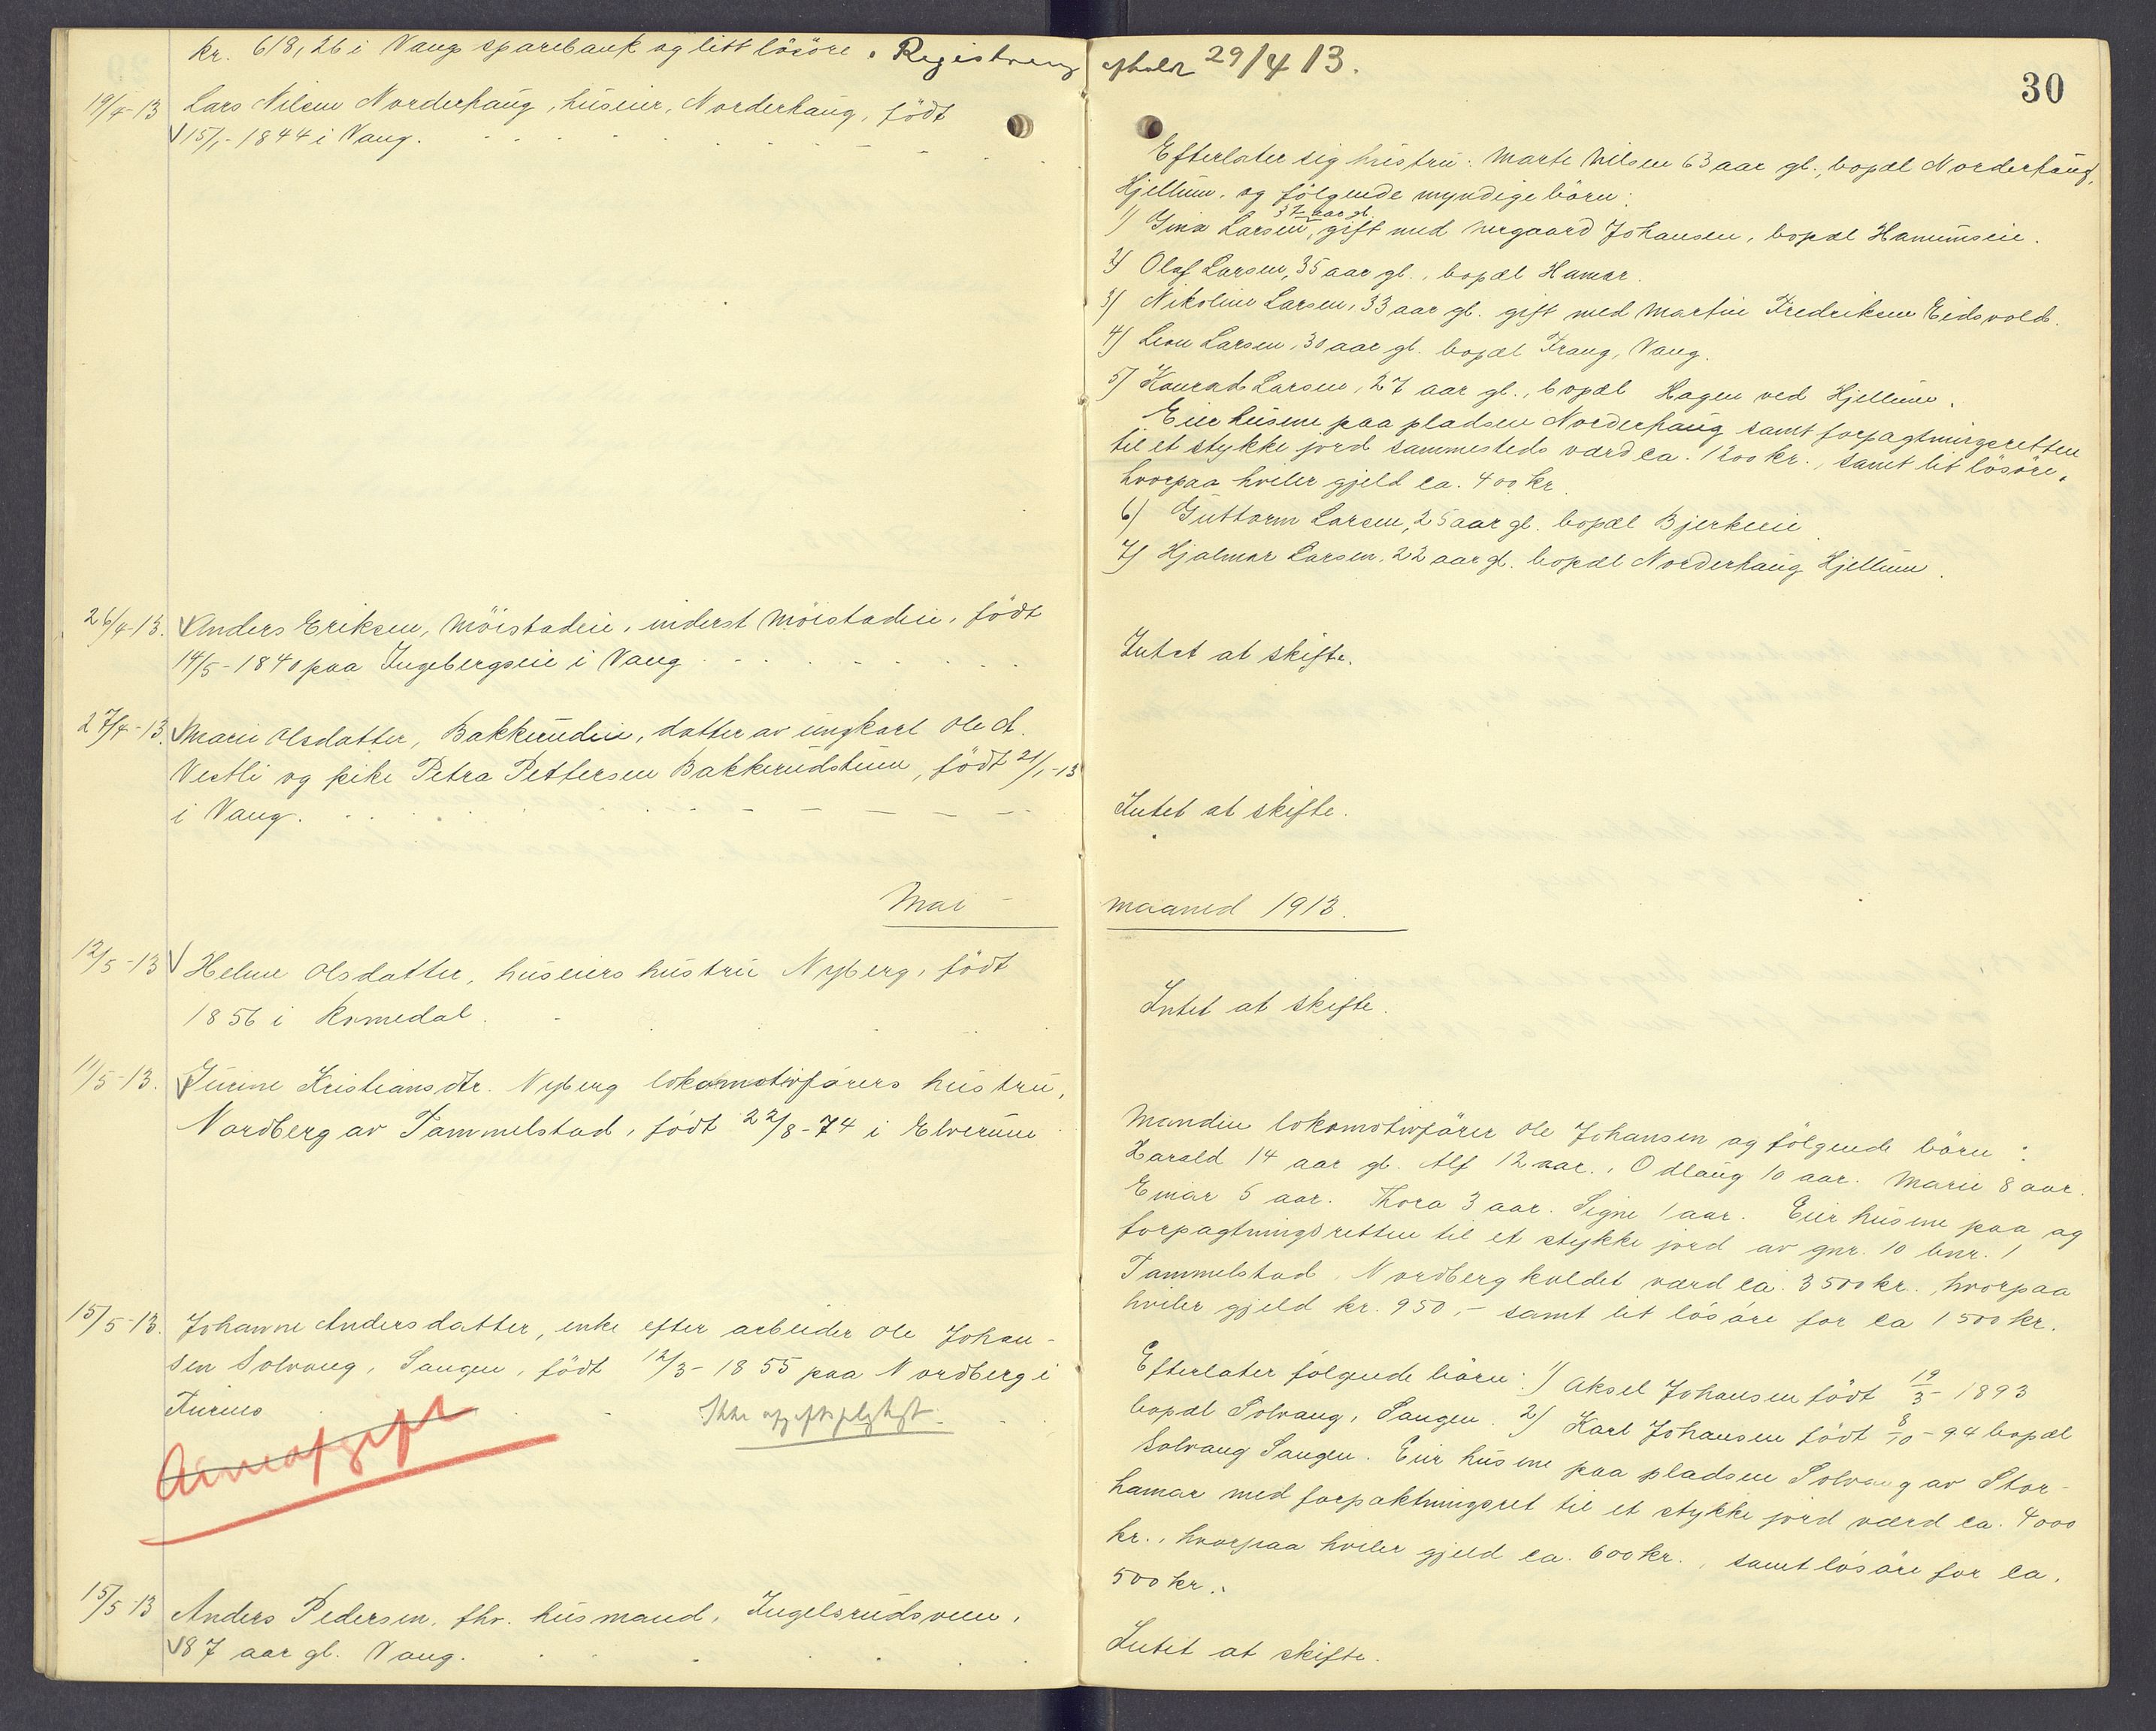 kr. 618,26 i Vang sparebank og litt lösöre. Registrering afholdt 29/4 13.
30
19/4-13 Lars Nilsen Norderhaug, huseier, Norderhaug, födt
15/1-1844 i Vang.
Efterlater sig hustru: Marte Nilsen 63 aar gl., bopæl Norderhaug,
Hjellum, og fölgende myndige börn:
1) Gina Larsen, 37 aar gl. gift med Nergaard Johansen, bopæl Hanumseie.
2) Olaf Larsen, 35 aar gl., bopæl Hamar.
3) Nikoline Larsen, 33 aar gl. gift med Martin Fredriksen Eidsvold.
4) Leon Larsen, 30 aar gl. bopæl Frang, Vang.
5) Konrad Larsen, 27 aar gl., bopæl Hagen ved Hjellum.
Eier husene paa pladsen Norderhaug samt forpagtningsretten
til et stykke jord sammesteds værd ca. 1200 kr., samt lit lösöre,
hvorpaa hviler gjeld ca. 400 kr.
6) Guttorm Larsen, 25 aar gl. bopæl Bjerkeeie
7) Hjalmar Larsen, 22 aar gl. bopæl Norderhaug Hjellum.
26/4-13. Anders Eriksen, Möistadeie, inderst Möistadeie, födt
14/5-1840 paa Ingebergseie i Vang
Intet at skifte.
27/4-13. Marie Olsdatter, Bakkerudeie, datter av ungkarl Ole A.
Vestli og pike Petra Pettersen Bakkerudstuen, födt 21/1-13
i Vang.
Intet at skifte.
Mai - maaned 1913.
12/5-13 Helene Olsdatter, huseiers hustru Nyberg, födt
1856 i Romedal.
Intet at skifte.
11/5-13. Gunine Kristiansdtr. Nyberg lokomotivförers hustru,
Nordberg av Tammelstad, födt 22/8-74 i Elverum
Manden lokomotivförer Ole Johansen og fölgende börn:
Harald 14 aar gl. Alf 12 aar., Odlaug 10 aar. Marie 8 aar.
Einar 5 aar. Thora 3 aar. Signe 1 aar. Eier husene paa og
forpagtningsretten til et stykke jord av gnr. 10 bnr. 1
Tammelstad, Nordberg kaldet værd ca. 3500 kr., hvorpaa
hviler gjeld kr. 950,- samt lit lösöre for ca 1500 kr.
15/5-13. Johanne Andersdatter, enke efter arbeider Ole Johan-
sen Solvang, Sangen, födt 12/3-1855 paa Nordberg i
Furnes
Ikke afgiftspligtigt.
Arveafgift
Efterlater fölgende börn: 1) Aksel Johansen födt 19/3-1893
bopæl Solvang, Sangen. 2) Karl Johansen födt 8/10-94 bopæl
Solvang Sangen. Eier husene paa pladsen Solvang av Stor-
hamar med forpaktningsret til et stykke jord værd ca. 4000
kr., hvorpaa hviler gjeld ca. 600 kr., samt lösöre for ca.
500 kr.
15/5-13 Anders Pedersen, fhv. husmand, Ingelsrudsveen,
87 aar gl. Vang.
Intet at skifte.